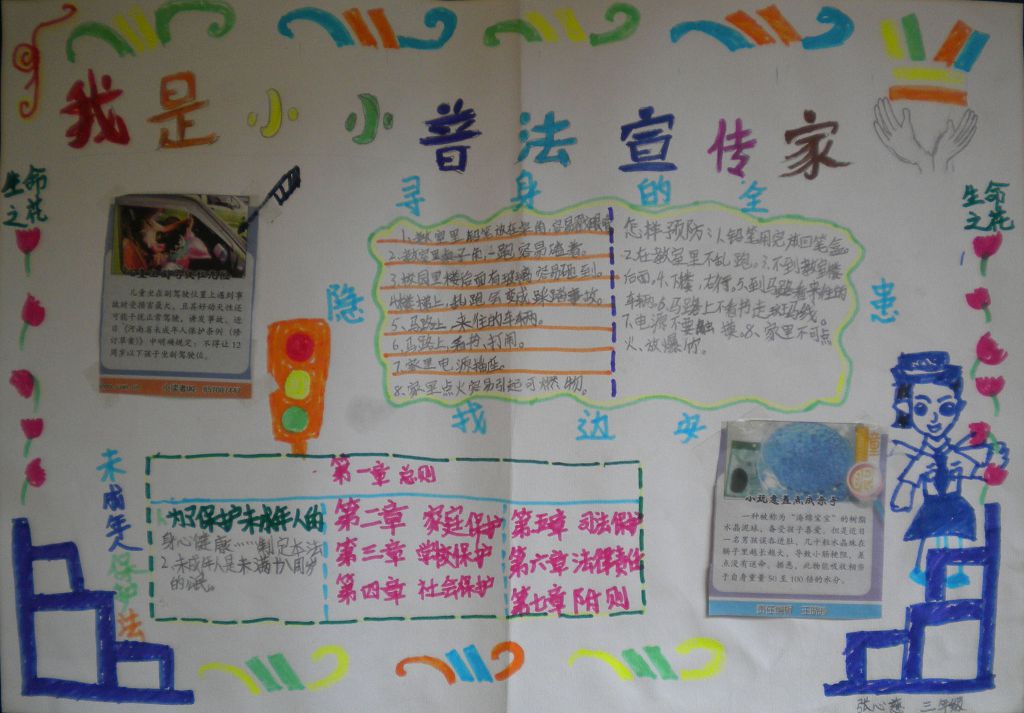 我是小小普法宣传家
生命
之花
生命
之花
寻身的全
隐
患
找边安
1、教室里铅笔放在桌角,容易戳眼睛
2、教室里桌子角,一跑容易撞着。
3、校园里楼后面有玻璃容易砸到。
4、楼梯上,乱跑会变成踩踏事故。
5、马路上,来往的车辆。
6、马路上,看书,打闹。
7、家里电源插座。
8、家里点火容易引起可燃物。
怎样预防:1、铅笔用完放回笔盒。
2、在教室里不乱跑。3、不到教室楼
后面,4、下楼,右行,5、到马路看来往的
车辆。6、马路上不看书走斑马线。
7、电源不要触摸。8、家里不可点
火、放爆竹。
儿童坐在副驾驶位置上遇到事
故时受损害最大,且喜好动天性还
可能干扰正常驾驶,诱发事故。近
日《河南省未成年人保护条例(修
订草案)》中明确规定:不得让12
周岁以下孩子坐副驾驶位。
小读者QQ
未成年人保护法
第一章 总则
为了保护未成年人的
身心健康……制定本法
2、未成年人是未满十八周岁
的公民。
第二章 家庭保护
第三章 学校保护
第四章 社会保护
第五章 司法保护
第六章 法律责任
第七章 附则
小玩意差点成杀手
一种被称为“海绵宝宝”的树脂
水晶泥球,备受孩子喜爱。但是近日
一名男孩误吞进肚,几十粒水晶珠在
肠子里越长越大,导致小肠梗阻,差
点没有送命。据悉,此物能吸收相当
于自身重量50至100倍的水分。
责任编辑
张心慈 三年级